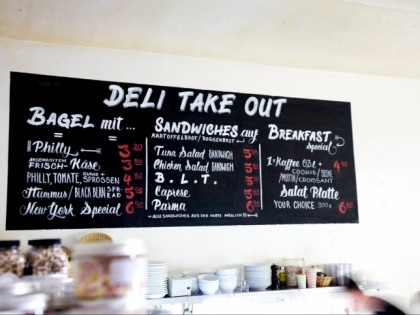 DELI TAKE OUT
BAGEL mit...
Philly
FRISCH-Käse
PHILLY, TOMATE, GURKE + SPROSSEN
HUMMUS / BLACK BEAN SPREAD
New York Special
SANDWICHES auf
KARTOFFELBROT / ROGGENBROT
Tuna Salad SANDWICH
Chicken Salad SANDWICH
B.L.T.
Caprese
Parma
ALLE SANDWICHES AUS DER KARTE MÖGLICH
BREAKFAST
Special
1x Kaffee
COOKIE /
/MUFFIN / CROISSANT
Salat Platte
YOUR CHOICE 300g